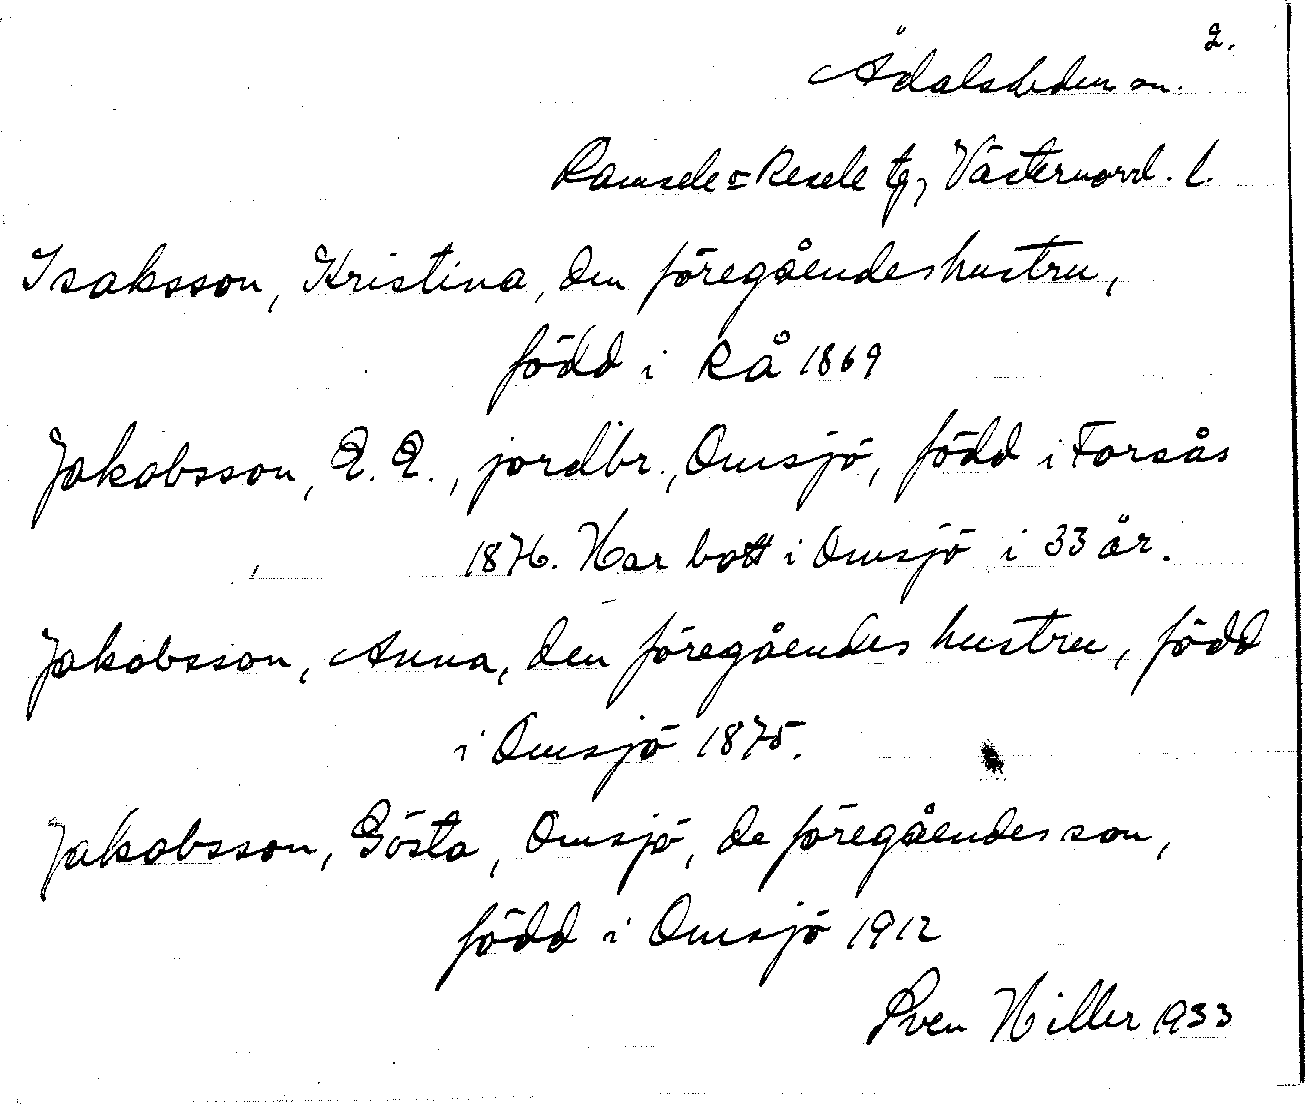 2.
Ådalsliden sn.
Ramsele o Resele tg, Västernorrl. l.
Isaksson, Kristina, den föregåendes hustru,
född i Rå 1869
Jakobsson, E. E., jordbr., Omsjö, född i Forsås
1876. Har bott i Omsjö i 33 år.
Jakobsson, Anna, den föregåendes hustru, född
i Omsjö 1875.
Jakobsson, Gösta, Omsjö, de föregåendes son,
född i Omsjö 1912
Sven Hiller 1933